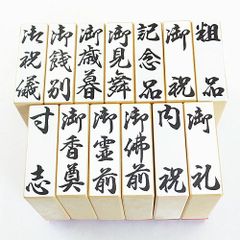 粗品
御祝
記念品
御見舞
御歳暮
御餞別
御祝儀
御礼
内祝
御佛前
御霊前
御香奠
寸志